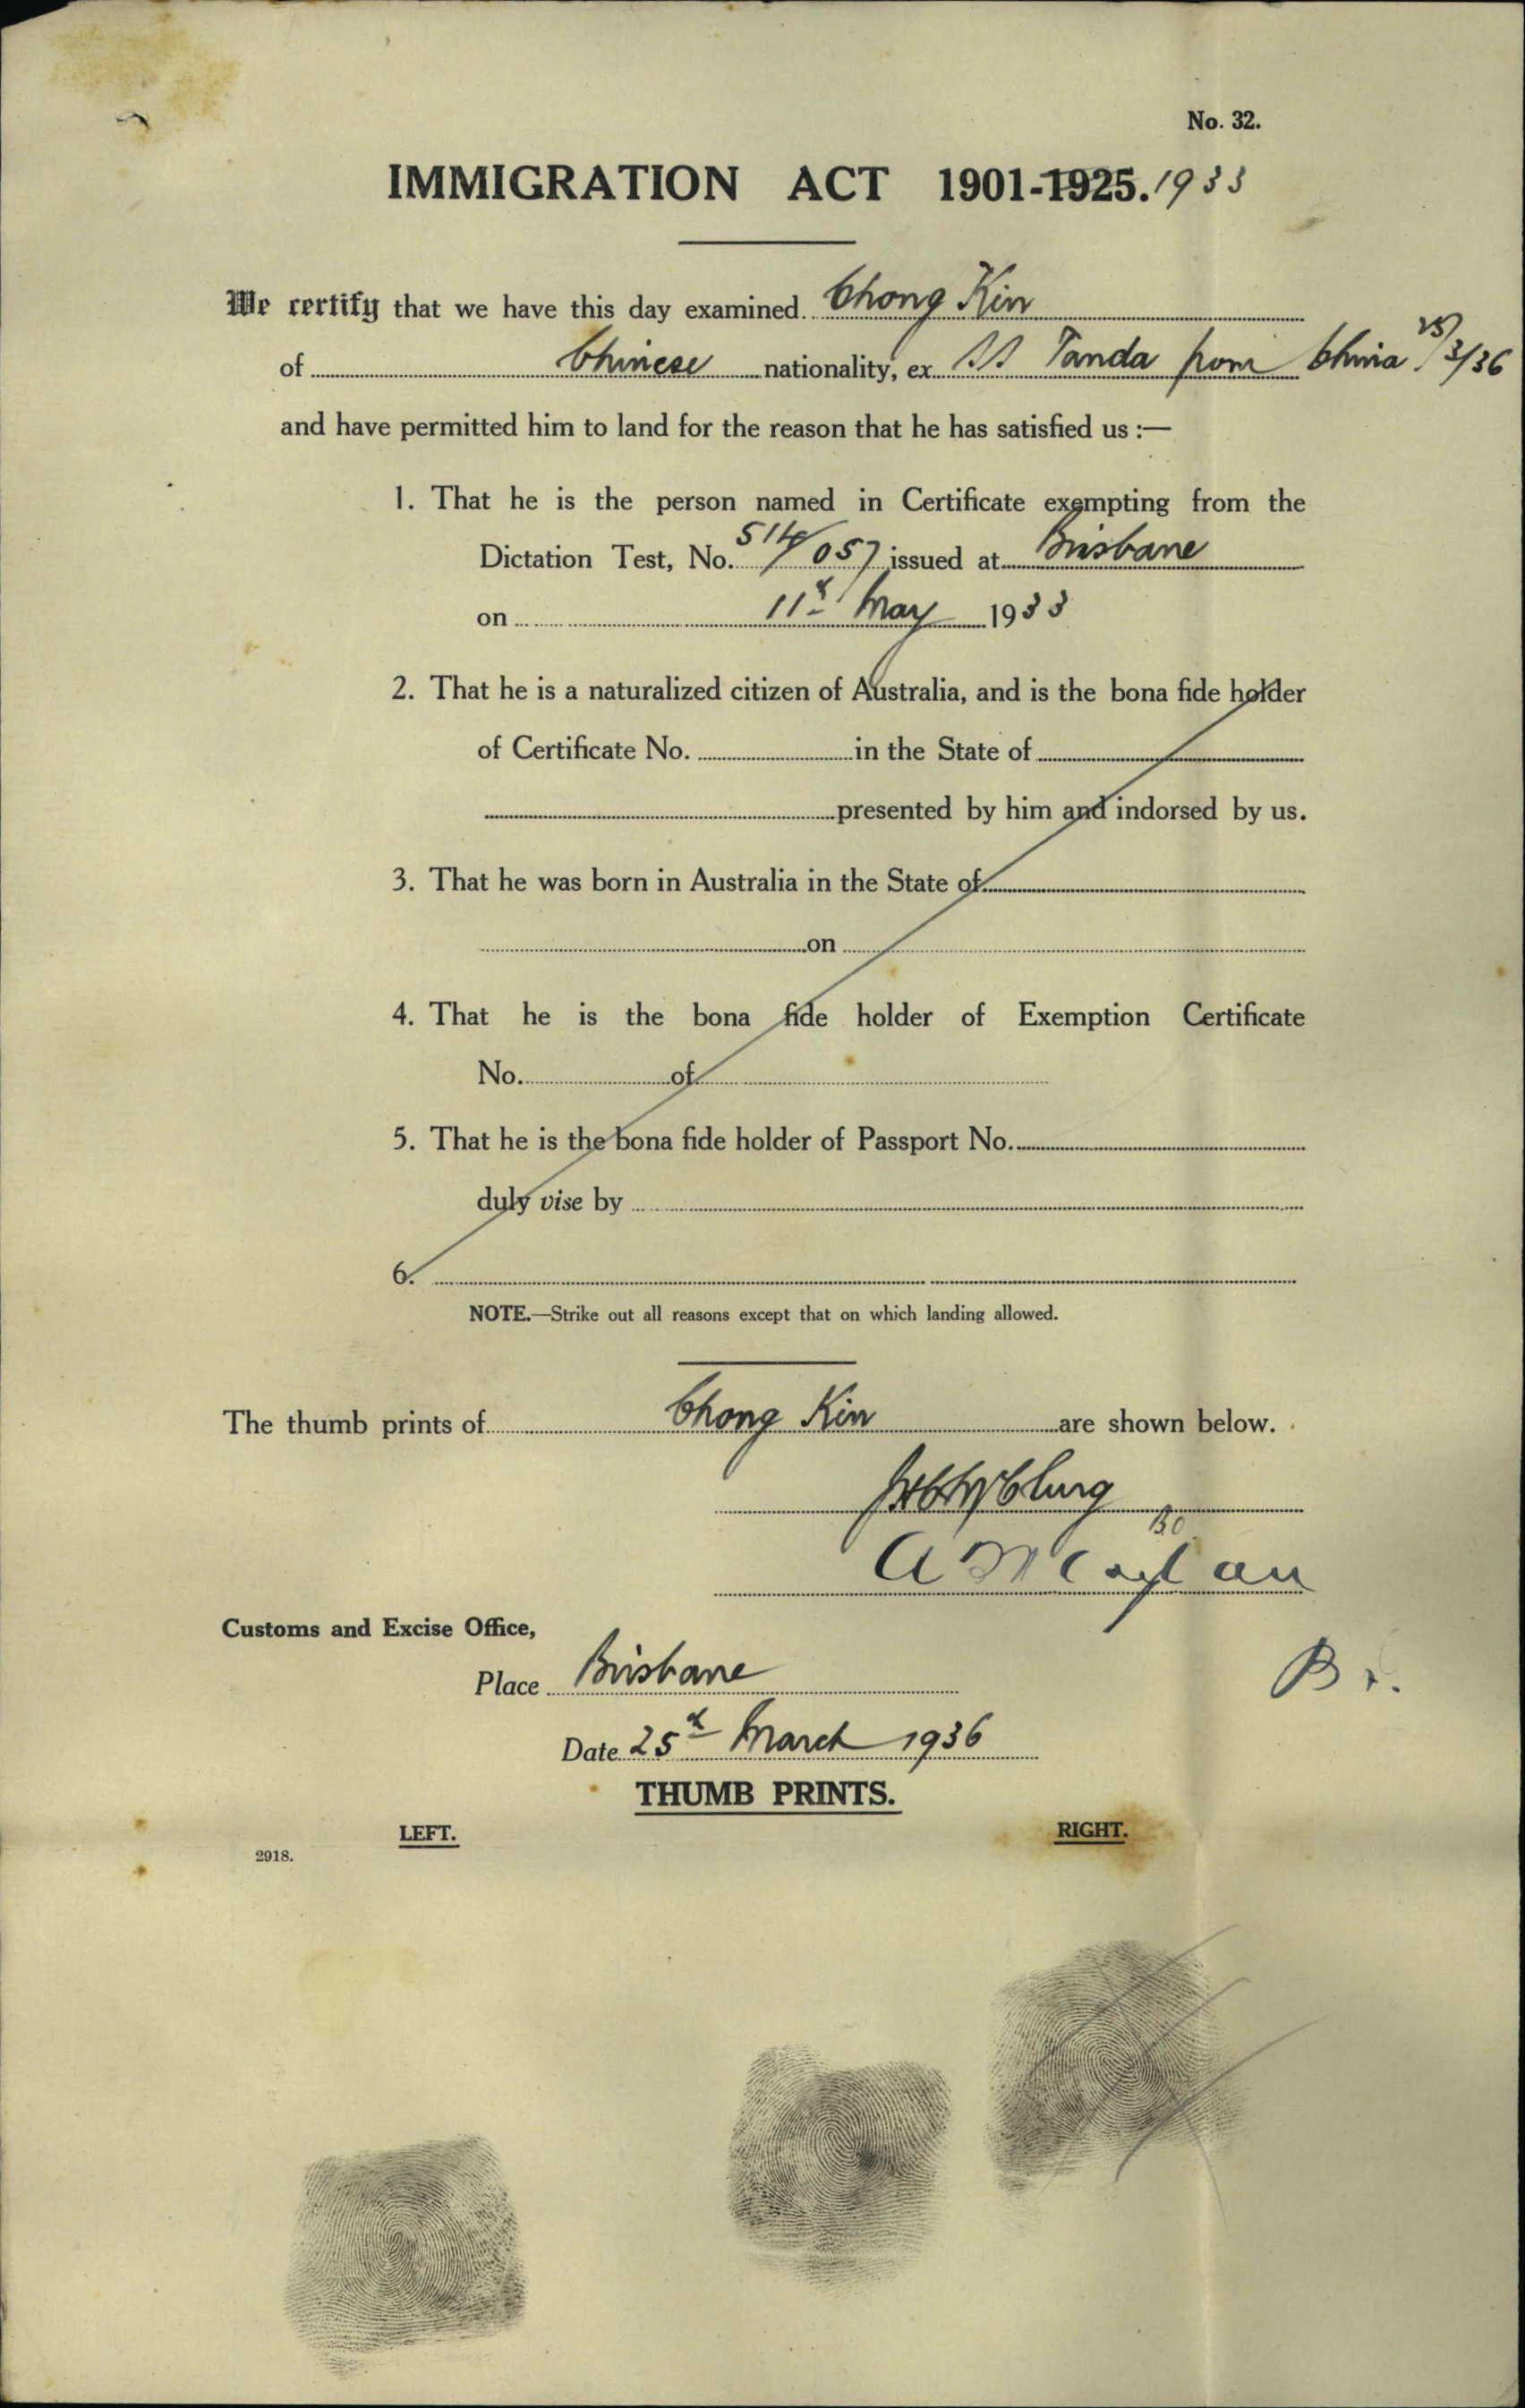 No. 32.
IMMIGRATION ACT 1901-1925. 1933
We certify that we have this day examined Chong Kin
of Chinese nationality, ex SS Tanda from China 25/3/36
and have permitted him to land for the reason that he has satisfied us :—
1. That he is the person named in Certificate exempting from the
Dictation Test, No. 514/057 issued at Brisbane
on 11th May 1933
2. That he is a naturalized citizen of Australia, and is the bona fide holder
of Certificate No. in the State of
presented by him and indorsed by us.
3. That he was born in Australia in the State of
on
4. That he is the bona fide holder of Exemption Certificate
No. of
5. That he is the bona fide holder of Passport No.
duly vise by
6.
NOTE.—Strike out all reasons except that on which landing allowed.
The thumb prints of Chong Kin are shown below.
Customs and Excise Office,
Place Brisbane
Date 25th March 1936
THUMB PRINTS.
LEFT. RIGHT.
2918.